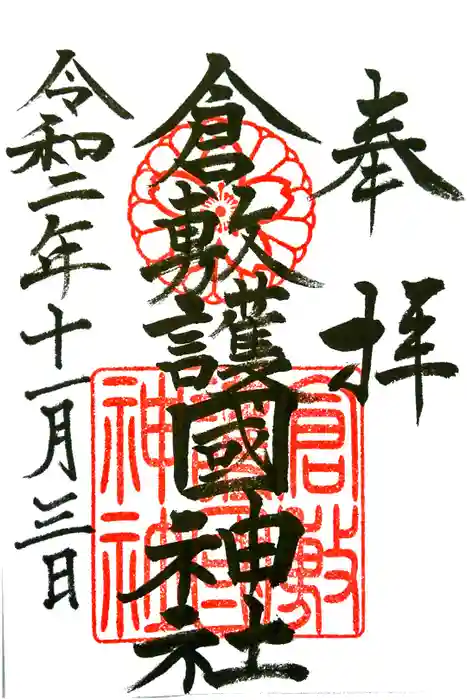 奉拝
倉敷護國神社
令和二年十一月三日